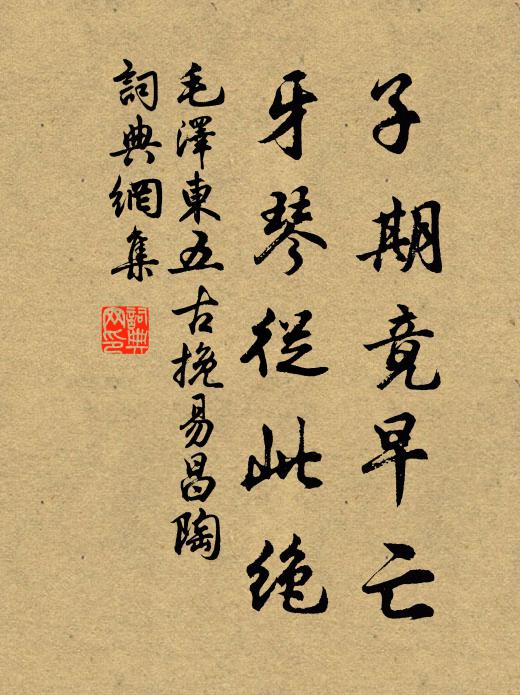 子期竟早亡
牙琴從此絶
毛澤東五古挽易昌陶
詞典網集
詞典网印